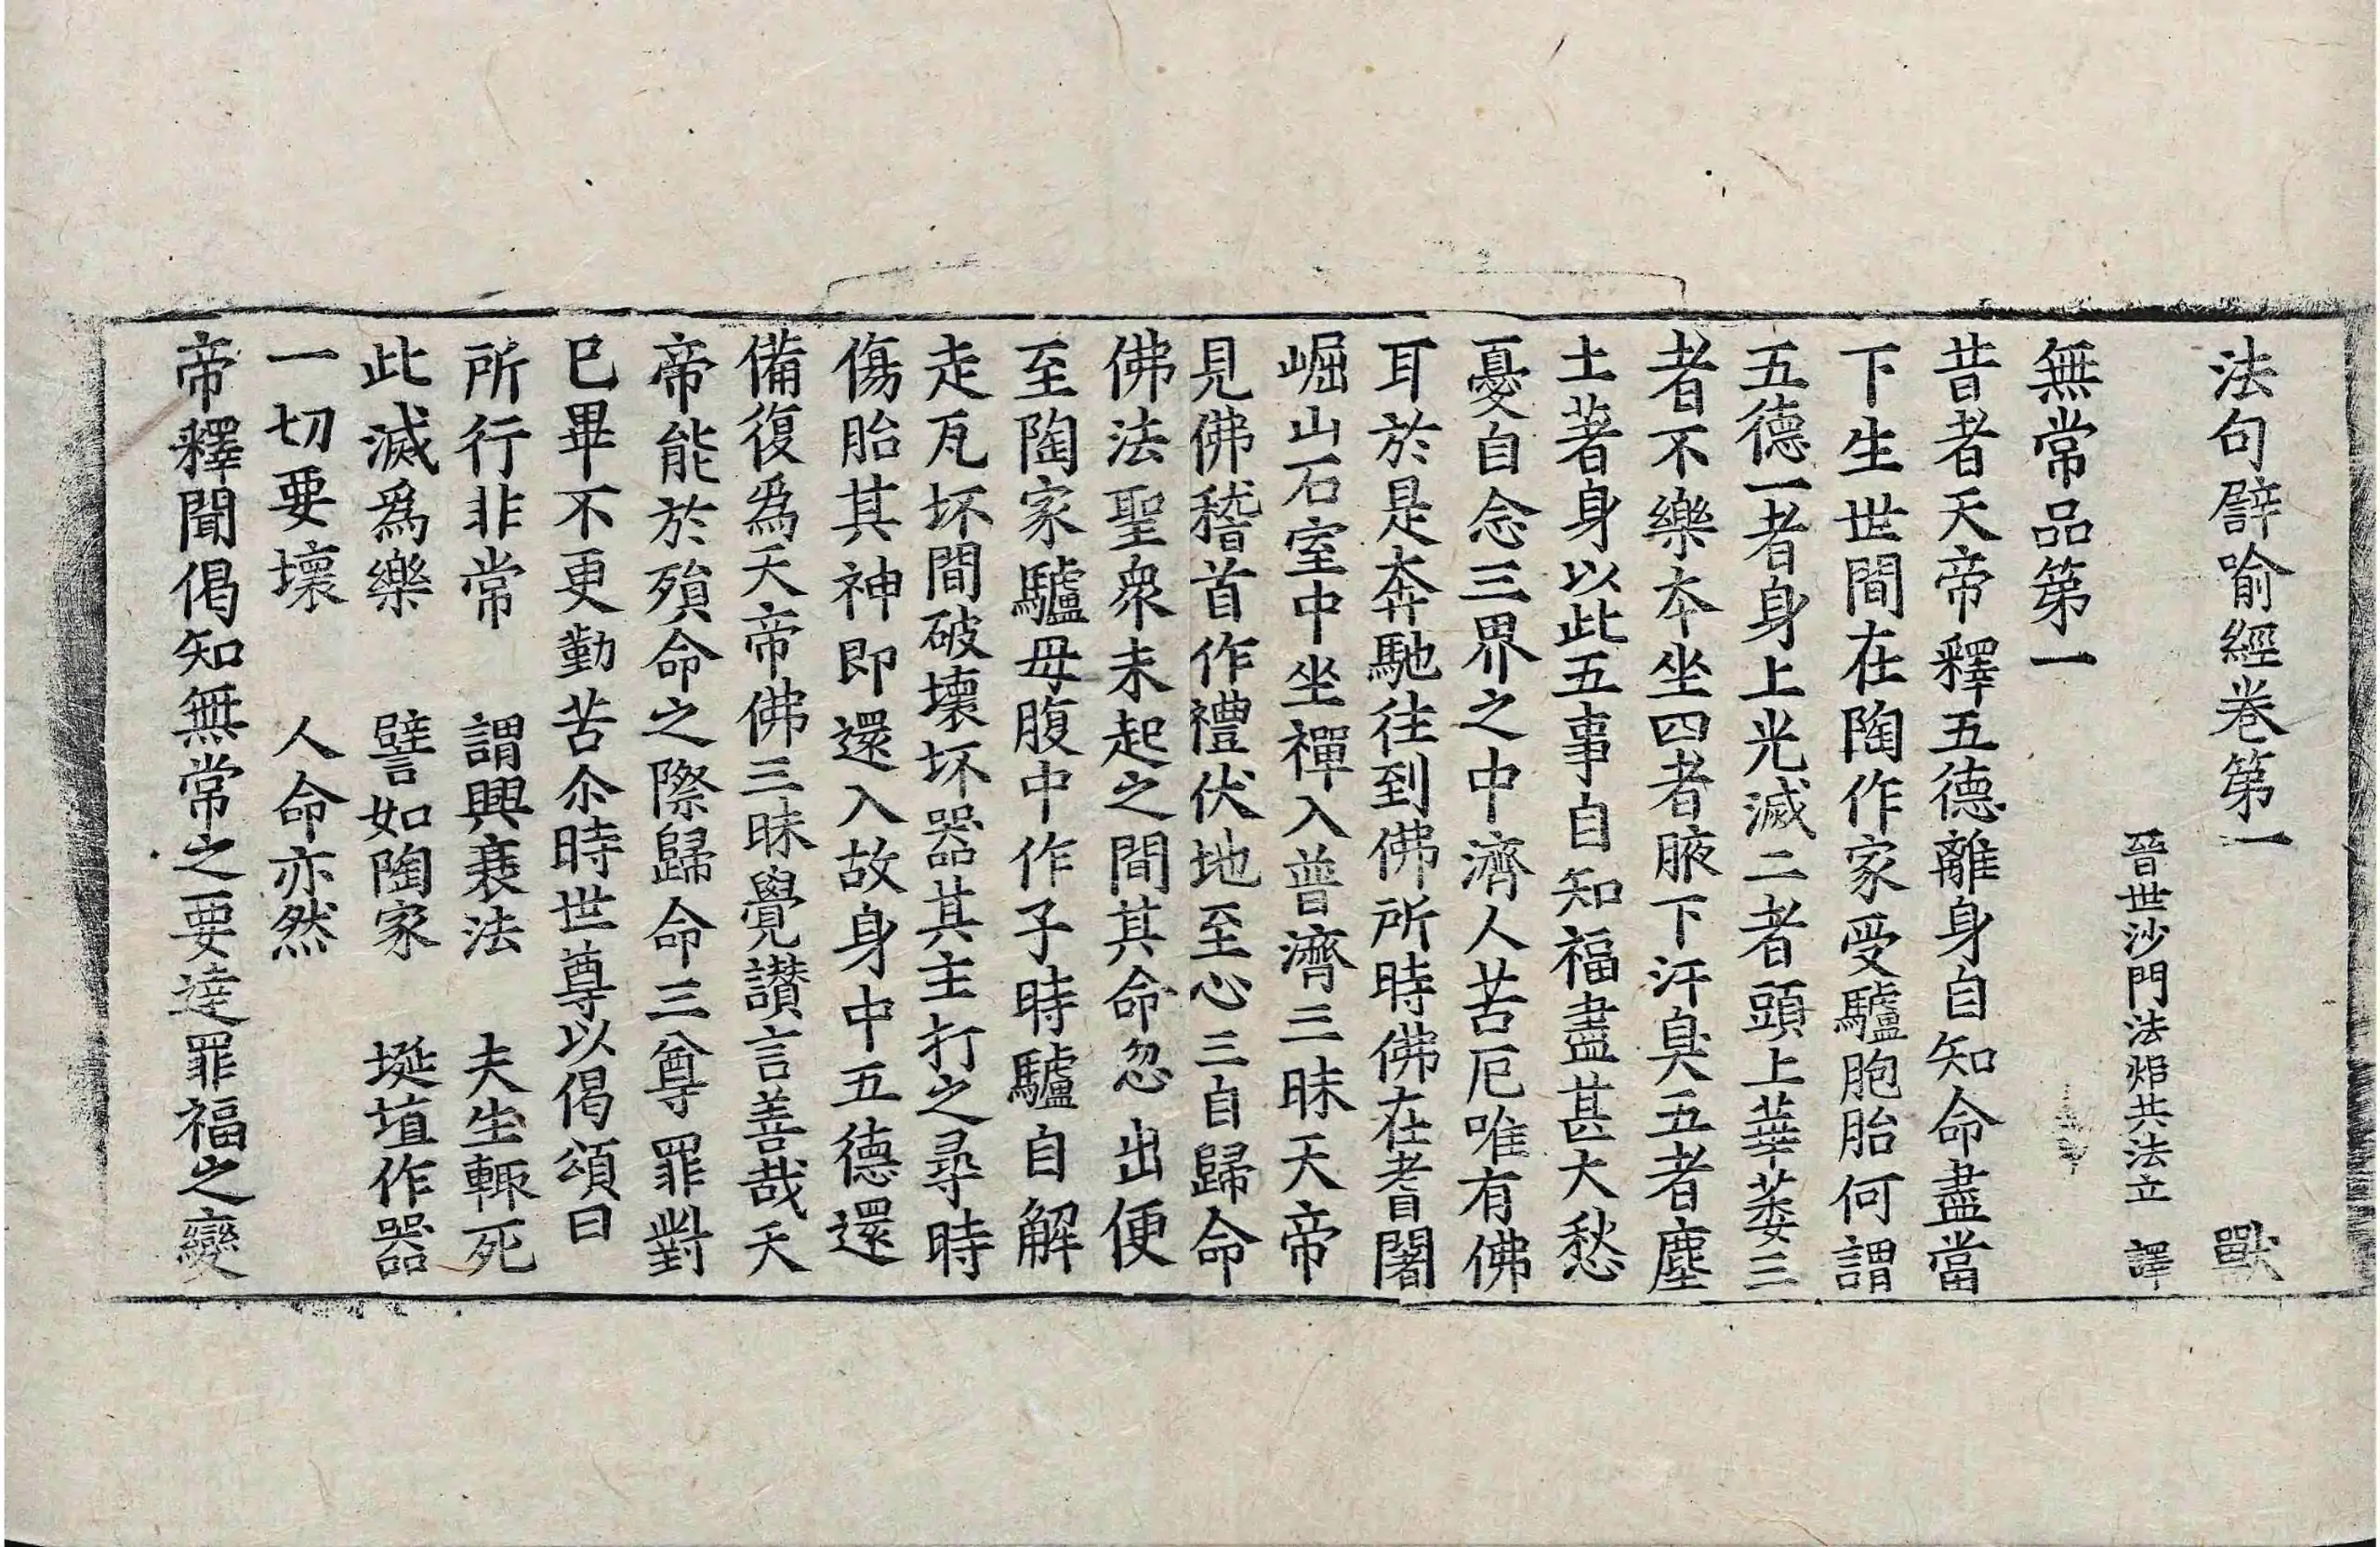 法句譬喻經卷第一 獸
晉世沙門法炬共法立 譯
無常品第一
昔者天帝釋五德離身自知命盡當
下生世間在陶作家受驢胞胎何謂
五德一者身上光滅二者頭上華萎三
者不樂本坐四者腋下汗臭五者塵
土著身以此五事自知福盡甚大愁
憂自念三界之中濟人苦厄唯有佛
耳於是奔馳往到佛所時佛在耆闍
崛山石室中坐禪入普濟三昧天帝
見佛稽首作禮伏地至心三自歸命
佛法聖衆未起之間其命忽出便
至陶家驢母腹中作子時驢自解
走瓦坏間破壞坏器其主打之尋時
傷胎其神即還入故身中五德還
備復爲天帝佛三昧覺讃言善哉天
帝能於殞命之際歸命三尊罪對
已畢不更勤苦尒時世尊以偈頌曰
所行非常 謂興衰法 夫生輙死
此滅爲樂 譬如陶家 埏埴作器
一切要壞 人命亦然
帝釋聞偈知無常之要達罪福之變